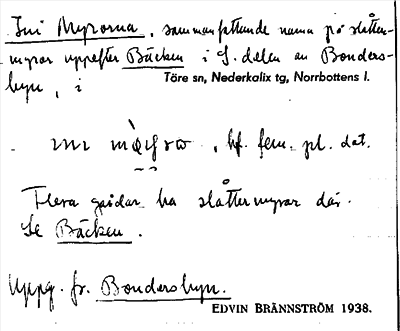 Ini Myrorna, sammanfattande namn på slåtter-
myrar uppefter Bäcken i S. delen av Bonders-
byn, i Töre sn, Nederkalix tg, Norrbottens l.
bf. fem. pl. dat.
Flera gårdar ha slåttermyrar där.
Se Bäcken.
Uppg. fr. Bondersbyn.
EDVIN BRÄNNSTRÖM 1938.